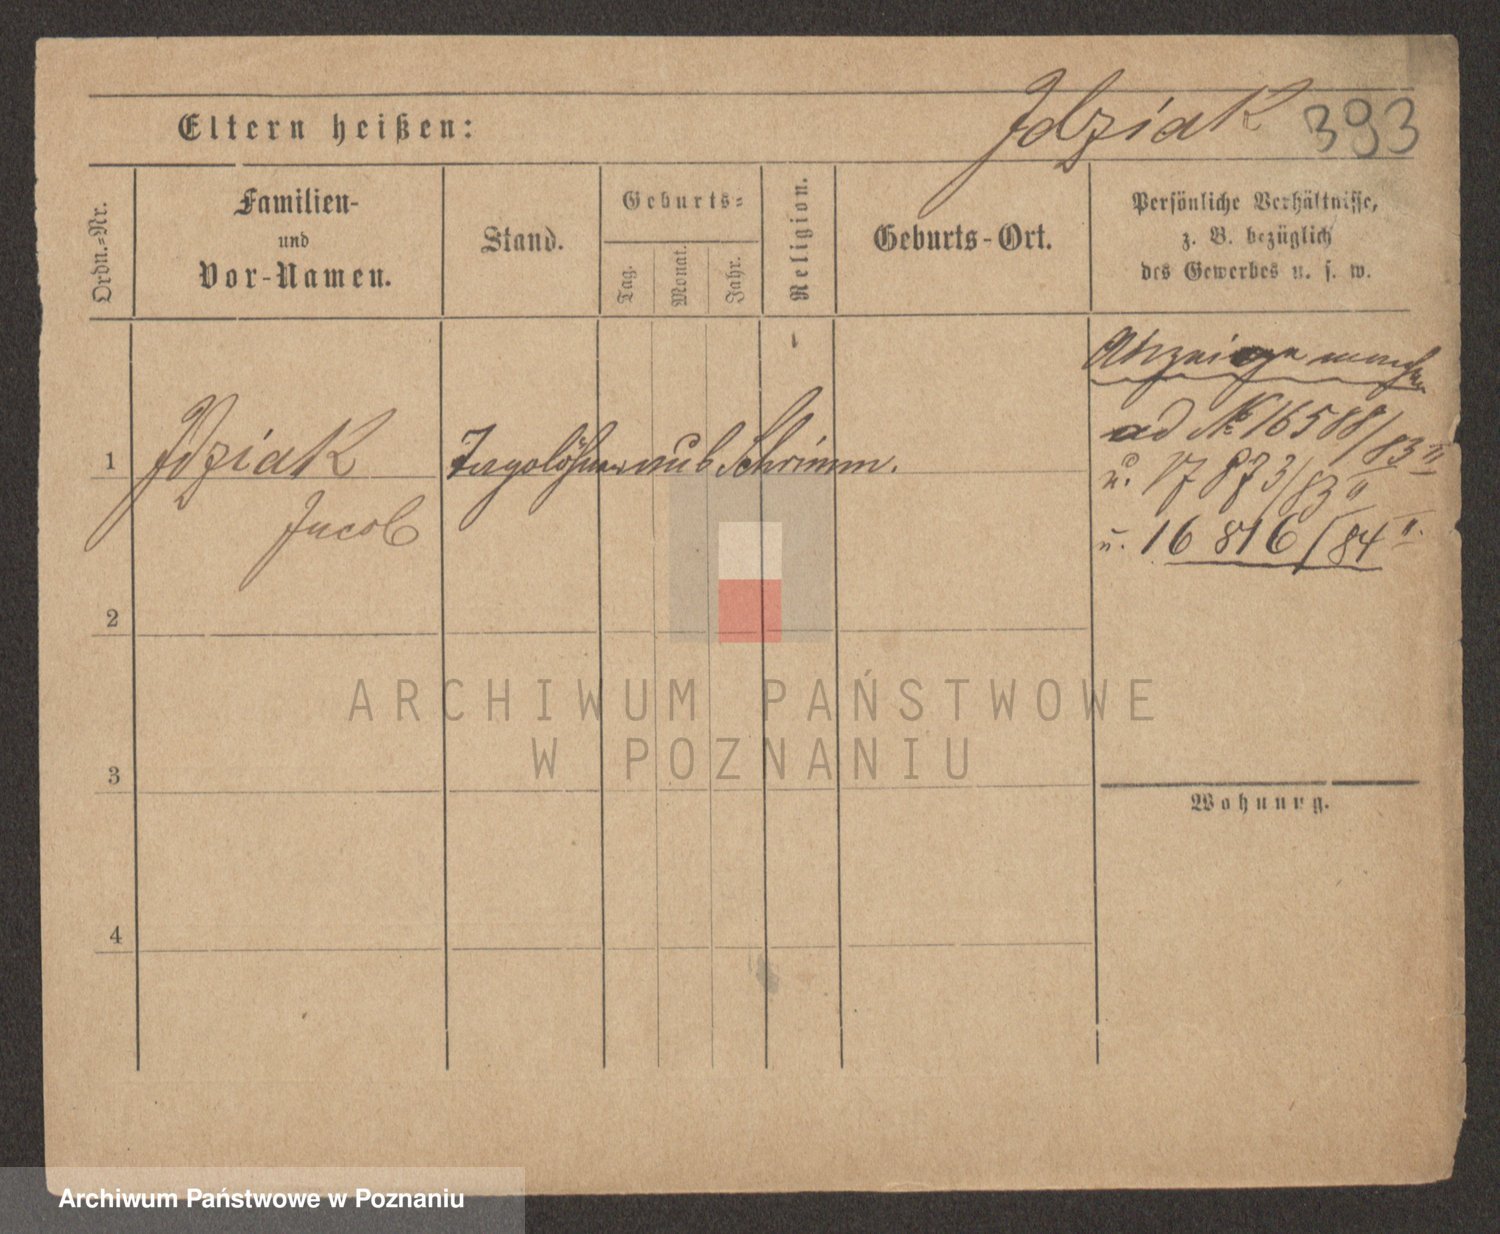 Idziak 393
Eltern heißen:
Ordn.-Nr.
Familien-
und
Vor-Namen.
Stand.
Geburts-
Tag.
Monat.
Jahr.
Religion.
Geburts-Ort.
Persönliche Verhältnisse,
z. B. bezüglich
des Gewerbes u. s. w.
1 Idziak Tagelöhner aus Schrimm.
Jacob
Anzeige machen
ad № 16588/83 II
u. 17873/83 II
u. 16816/84 II.
2
3
4
Wohnung.
ARCHIWUM PAŃSTWOWE
W POZNANIU
Archiwum Państwowe w Poznaniu